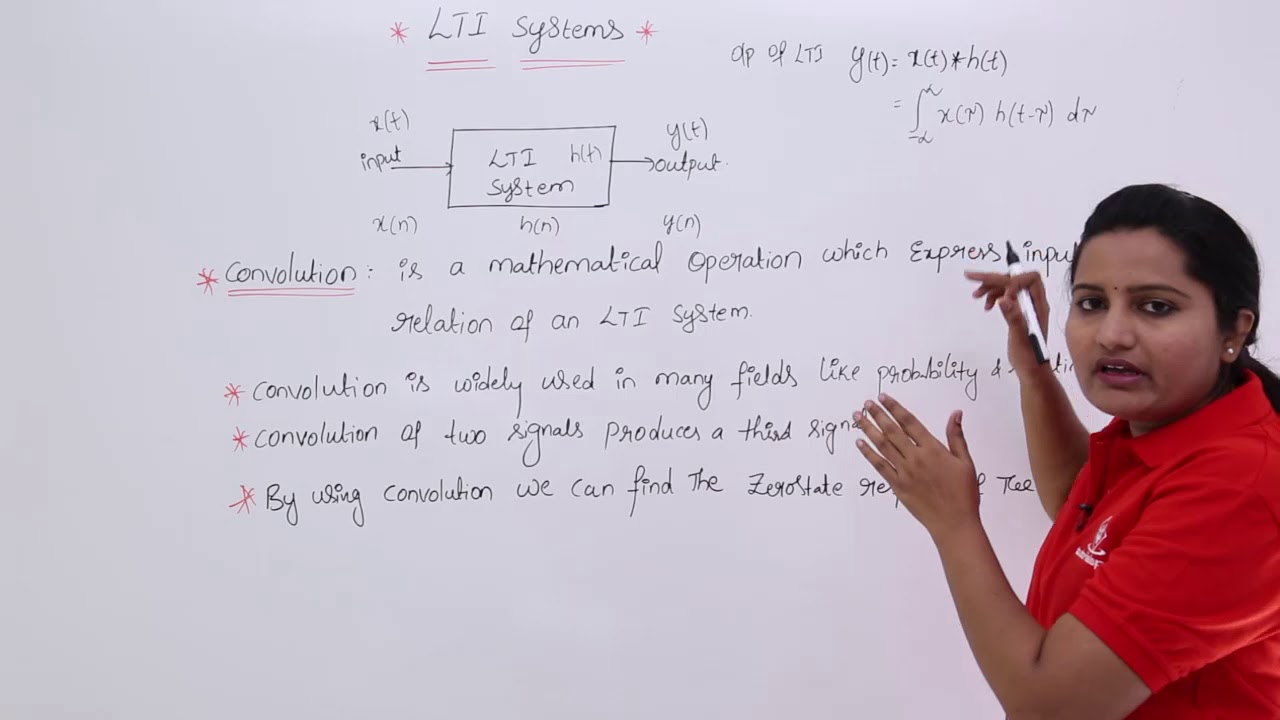 * LTI Systems *
op of LTI y(t) = x(t)*h(t)
= ∫_{-∞}^{∞} x(τ) h(t-τ) dτ
x(t)
input
LTI h(t)
System
y(t)
output
x(n) h(n) y(n)
* Convolution : is a mathematical operation which Express input
relation of an LTI System.
* Convolution is widely used in many fields like probability &
* Convolution of two signals produces a third
* By using convolution we can find The Zerostate